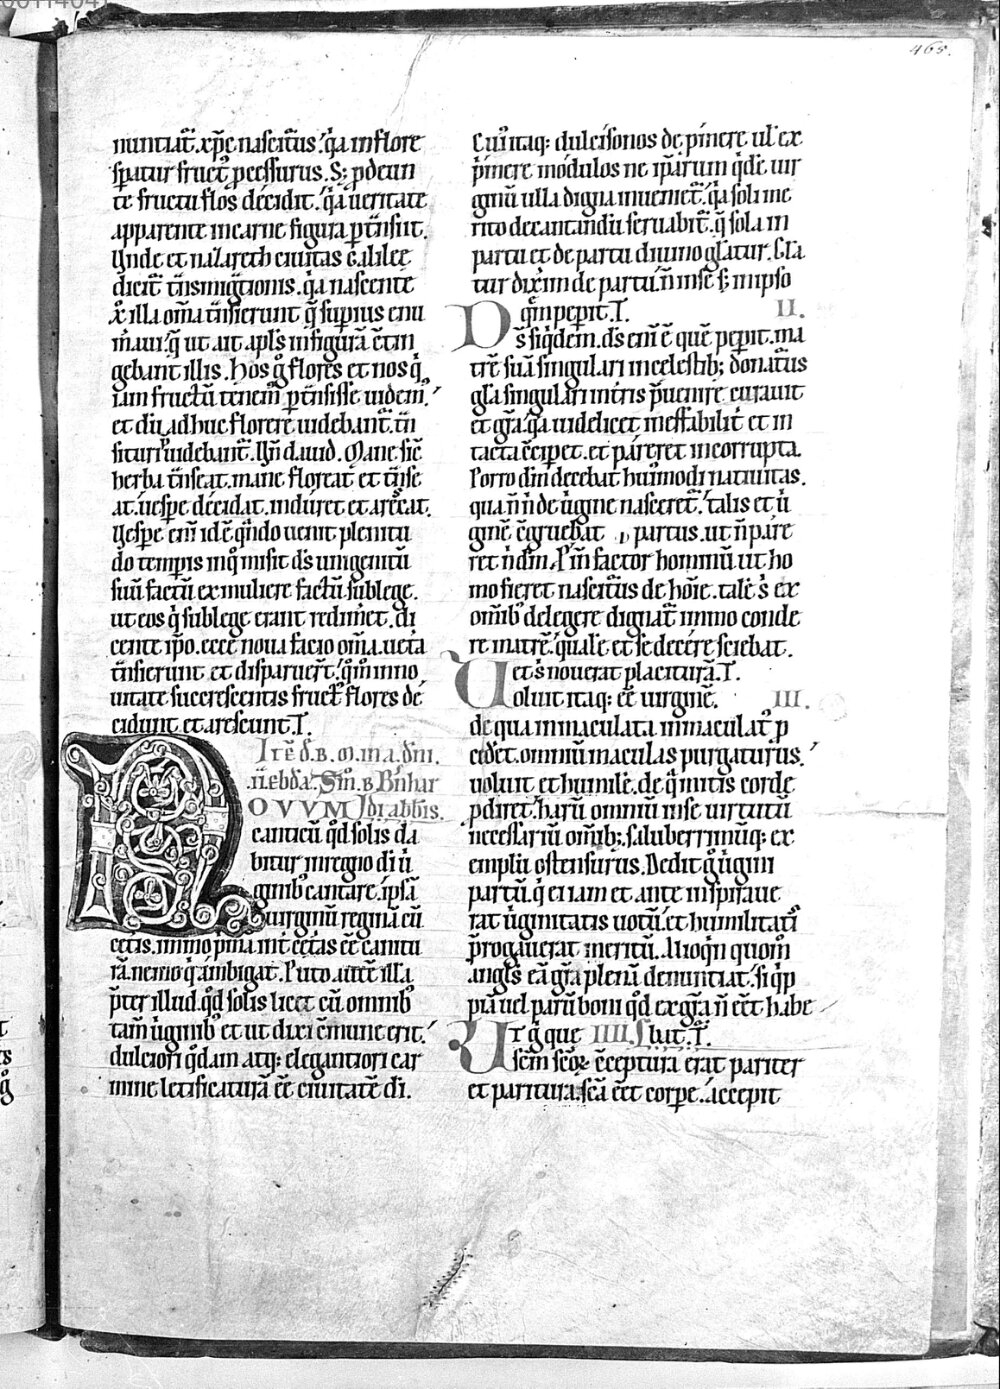 465.
nuntiat̃. xp̃c nascit̃us. q̃a in flore
sp̃atur fruct᷒ p̃cessurus. S; p̱deun
te fructu flos décidit. q̃a ueritate
apparente in carne figura p̱t̃nsiit.
Vnde et nazareth ciuitas Galilee
dicit̃ t̃nsmigr̃tionis. q̃a nascente
xp̃o illa om̃ia t̃nsierunt
gebant illis. Hos g̊ flores et nos q̇
iam fructũ tenem᷒ p̱t̃nsisse uidem᷒.
et dũ adhuc florere uidebant̃. t̃n
situri p̱uidebant̃. Vñ dauid. Mane sic̃
herba t̃nseat. mane floreat et t̃nse
at. uesp̱e décidat. induret et aréscat.
Vesp̱e eni᷒ id ẽ q̃ndo uenit plenitu
do temp̱is in q̊ misit d̃s unigenitũ
suũ factũ ex muliere factũ sub lege.
ut eos q̇ sub lege erant redim̃et. di
cente ip̃o. ecce noua facio om̃a. uet̃a
t̃nsierunt et disparuer̃t. q̃m in no
uitate succrescentis fruct᷒ flores de
cidunt et arescunt. T̃.
Itẽ d̃. B. M. in a. dñi.
ñ ebda. Sm̃. B. B̃nhar
NOVVM di abb̃is.
canticũ q̃d solis da
bitur in regno di ũi
ginib᷒ cantare. ip̃sã
q̊ uirginũ reginã cũ
cet̃is. immo p̃ma int̃ cet̃as eẽ cantu
rã. nemo q̃ ambigat. Puto aut̃e illa
p̃ter illud. q̃d solis licet cũ omnib᷒
tam̃ ũginib᷒ et ut dixi c̃mune erit.
dulciori q̃dam atq: elegantiori car
mine letificaturã eẽ ciuitatẽ di.
Cui᷒ itaq: dulcisonos dep̱mere ul̃ ex
p̃mere módulos ne ip̃arum q̇dẽ uir
ginũ ulla digna inueniet᷒. q̃a soli me
rito decantandũ seruabit̃. q̃ sola in
partu et de partu diuino gl̃atur. Gl̃a
tur dixim de partu. ñ in se. s; in ip̃so
q̃m pep̱it. T̃. II.
Ds̃ siq̇dem. d̃s eni᷒ ẽ quẽ pep̱it. ma
trẽ suã singulari in celestib; donat̃us
gl̃a singulari in t̃ris p̃uenire curauit
et gr̃a. q̃a uidelicet ineffabilit̃ et in
tacta c̃cip̱et. et páreret incorrupta.
Porro dm̃ decebat hui᷒modi natiuitas.
qua ñ ñ de ũgine nasceret᷒. talis et ũ
ginẽ c̃gruebat partus. ut ñ páre
ret ñ dm̃. P̱in factor hominũ. ut ho
mo fieret nascit̃us de hoi᷒e. talẽ s ex
om̃ib᷒ delegere dignat᷒ immo conde
re matrẽ. qualẽ et se decere sciebat.
Vet s nouerat placiturã. T̃.
Voluit itaq: eẽ uirginẽ. III.
de qua immaculata immaculat᷒ p̱
cedet̃. omniũ maculas purgaturus.
uoluit et humilẽ. de q̃ mitis corde
p̱diret. harũ omniũ in se uirtutũ
necessariũ om̃ib;. saluberrimũq: ex
emplũ ostensurus. Dedit g̊ ũgini
partũ. q̇ ei iam et ante inspiraue
rat ũginitatis uotũ. et humilitat̃
p̃rogauerat meritũ. Alioq̇n quom̊
angl̃s eã gr̃a plenã denuntiat. si q̇p̱
piã uel parũ boni q̃d ex gr̃a ñ eẽt habe
Vt g̊ que IIII. buit. T̃.
scm̃ scõꝝ c̃ceptura erat pariter
et paritura. sc̃a eẽt corp̱e. accepit